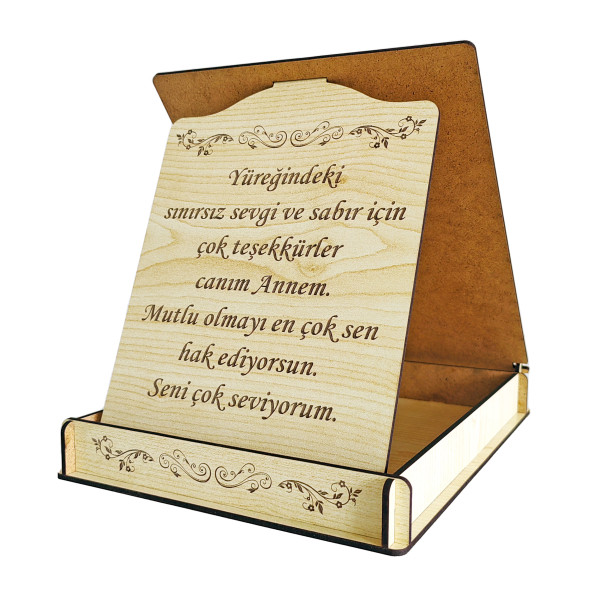 Yüreğindeki
sınırsız sevgi ve sabır için
çok teşekkürler
canım Annem.
Mutlu olmayı en çok sen
hak ediyorsun.
Seni çok seviyorum.